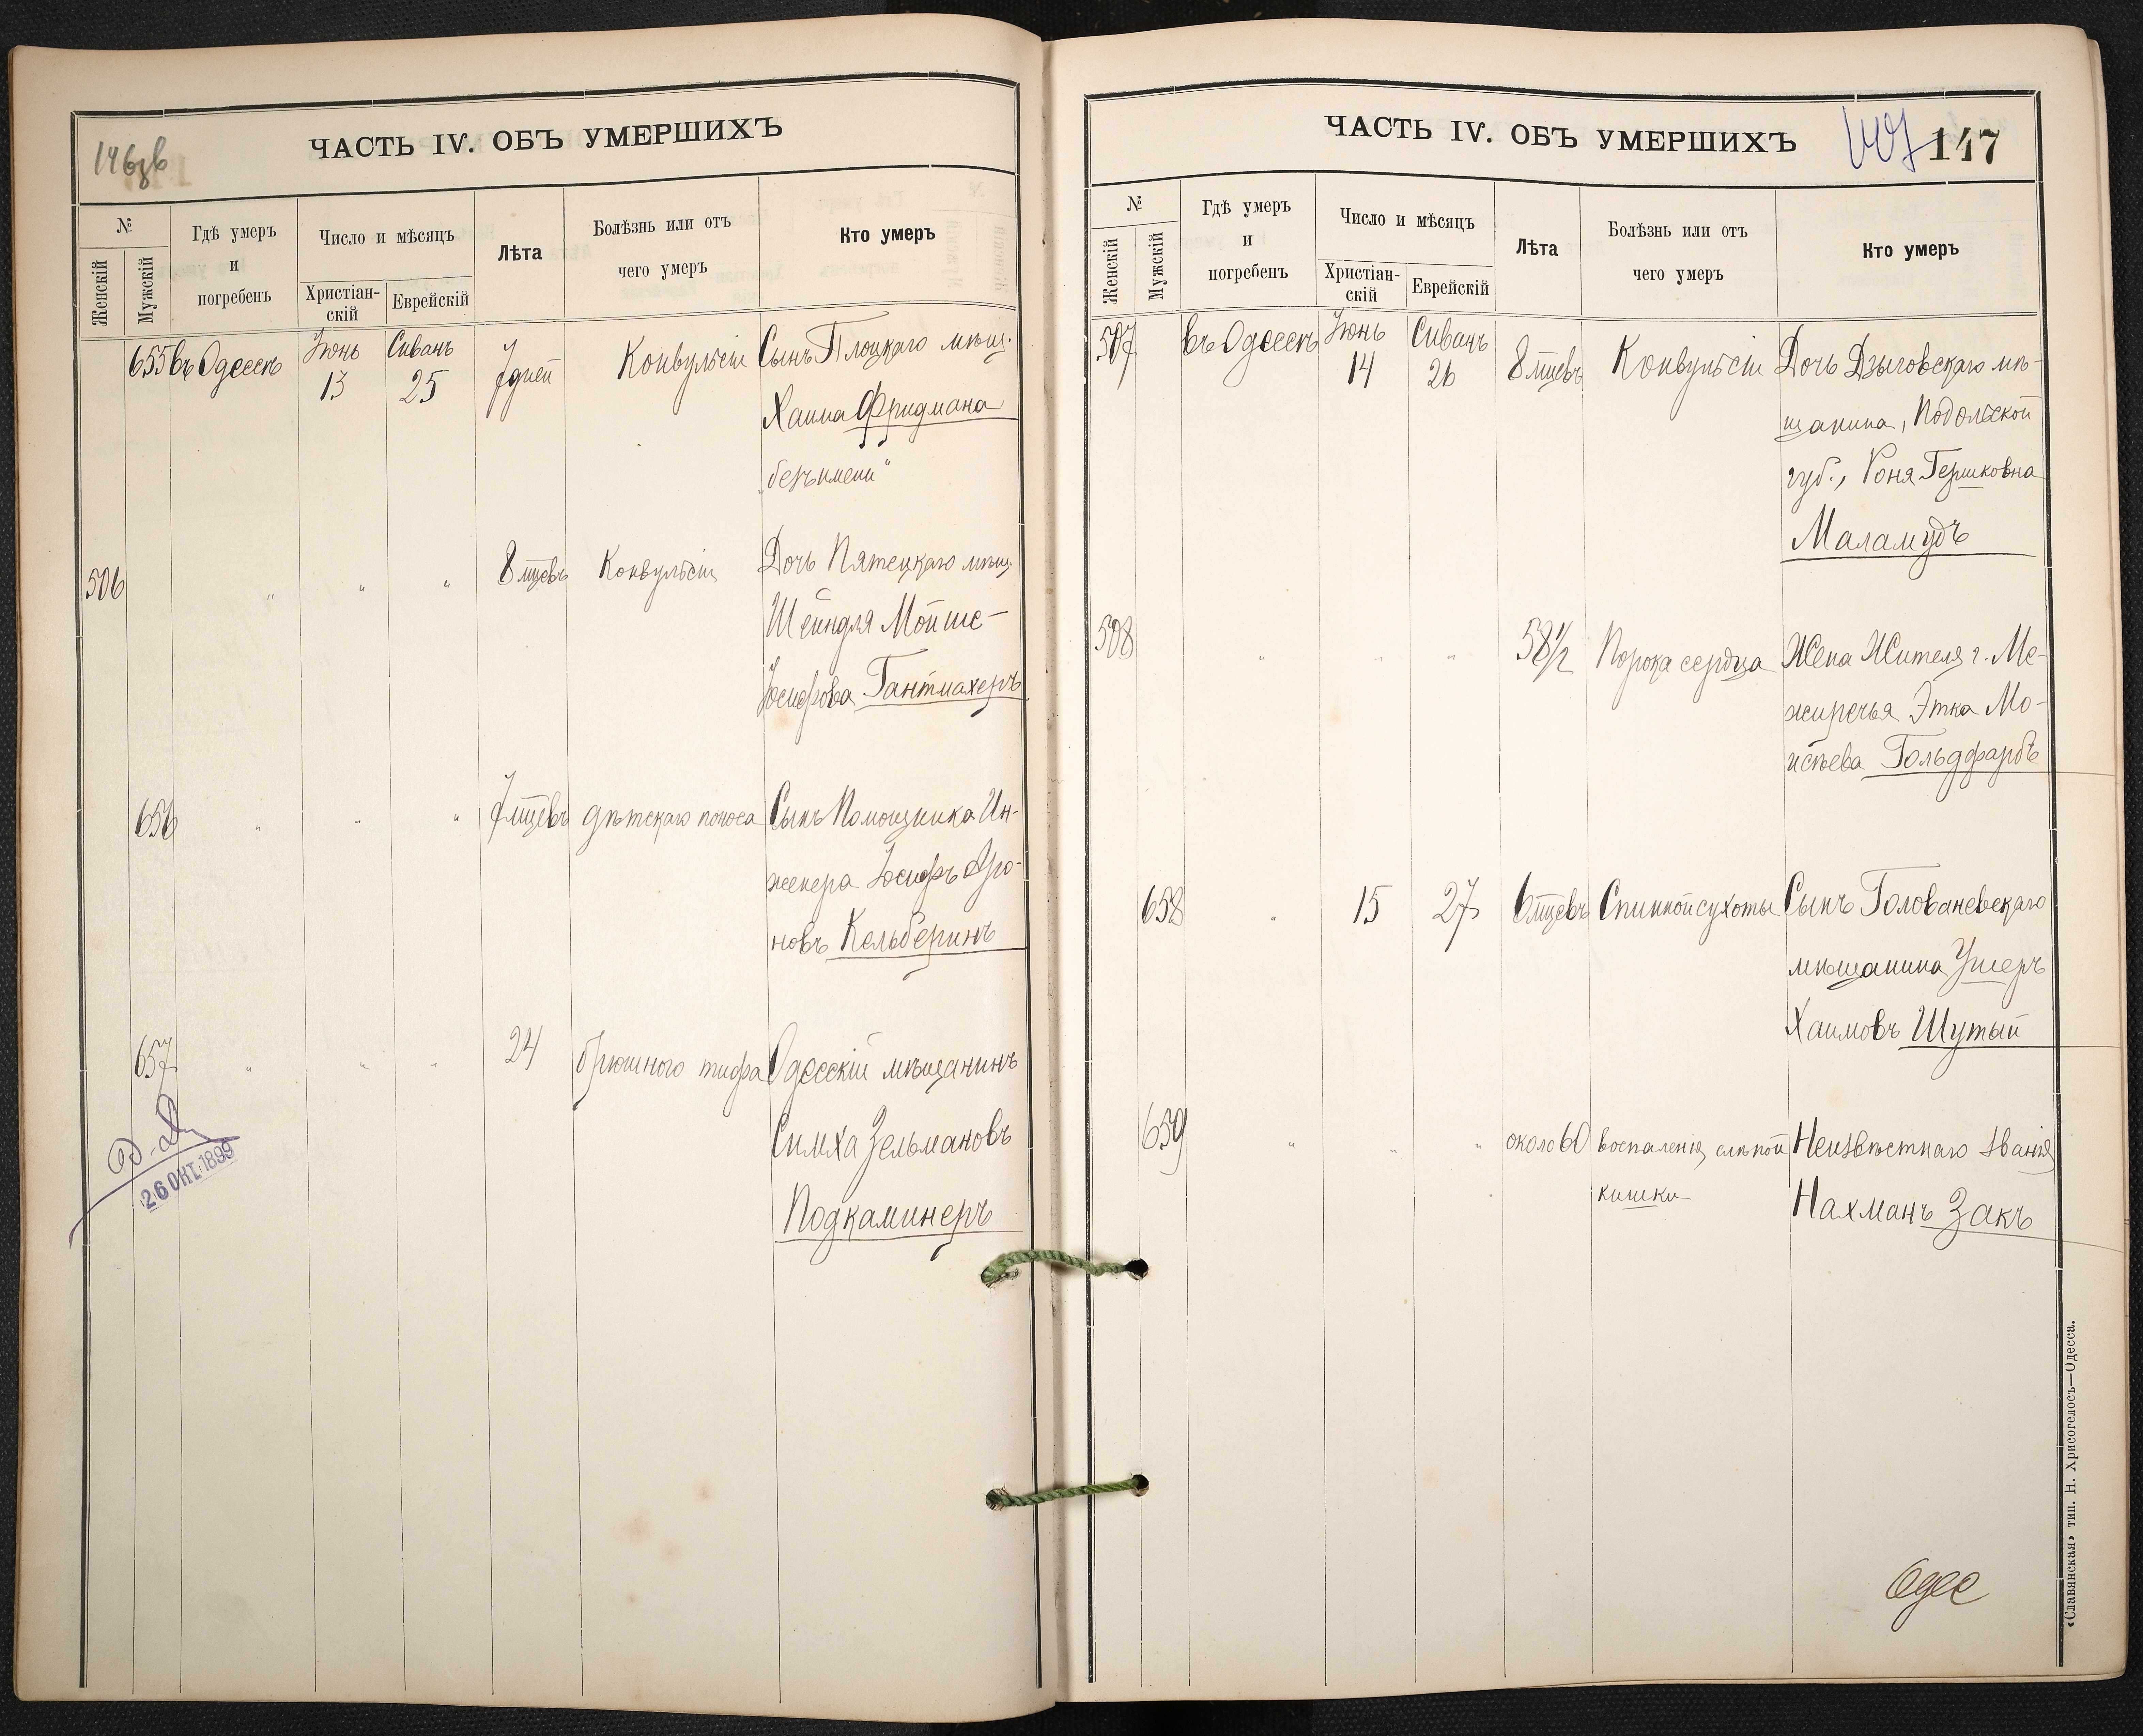 146зв
ЧАСТЬ IV. ОБЪ УМЕРШИХЪ
№
Женскій
Мужскій
Гдѣ умеръ
и
погребенъ
Число и мѣсяцъ
Христіан-
скій
Еврейскій
Лѣта
Болѣзнь или отъ
чего умеръ
Кто умеръ
655 въ Одессѣ Іюнь 13 Сиванъ 25 7 дней Конвульсіи Сынъ Плоцкаго мѣщ.
Хаима Фридмана
„безъ имени“
506 " " " 8 мцевъ Конвульсіи Дочь Пятецкаго мѣщ.
Шейндля Мойше-
Іосифова Гантмахеръ
656 " " " 7 мцевъ дѣтскаго поноса Сынъ Помощника Ин-
женера Іосифъ Аро-
новъ Кельберинъ
657 " " " 24 брюшного тифа Одесскій мѣщанинъ
Симха Зельмановъ
Подкаминеръ
26 ОКТ. 1899
ЧАСТЬ IV. ОБЪ УМЕРШИХЪ
147
147
№
Женскій
Мужскій
Гдѣ умеръ
и
погребенъ
Число и мѣсяцъ
Христіан-
скій
Еврейскій
Лѣта
Болѣзнь или отъ
чего умеръ
Кто умеръ
507 въ Одессѣ Іюнь 14 Сиванъ 26 8 мцевъ Конвульсіи Дочь Дзыговскаго мѣ-
щанина, Подольской
губ., Роня Гершковна
Маламудъ
508 " " " 58½ Порока сердца Жена Жителя г. Ме-
жиречья Этка Мо-
исѣева Гольдфарбъ
658 " 15 27 6 мцевъ Спинной сухоты Сынъ Голованевскаго
мѣщанина Ушеръ
Хаимовъ Шутый
659 " " " около 60 воспаленія слѣпой Неизвѣстнаго званія
кишки Нахманъ Закъ
Одес
«Славянская» тип. Н. Хрисогелосъ—Одесса.